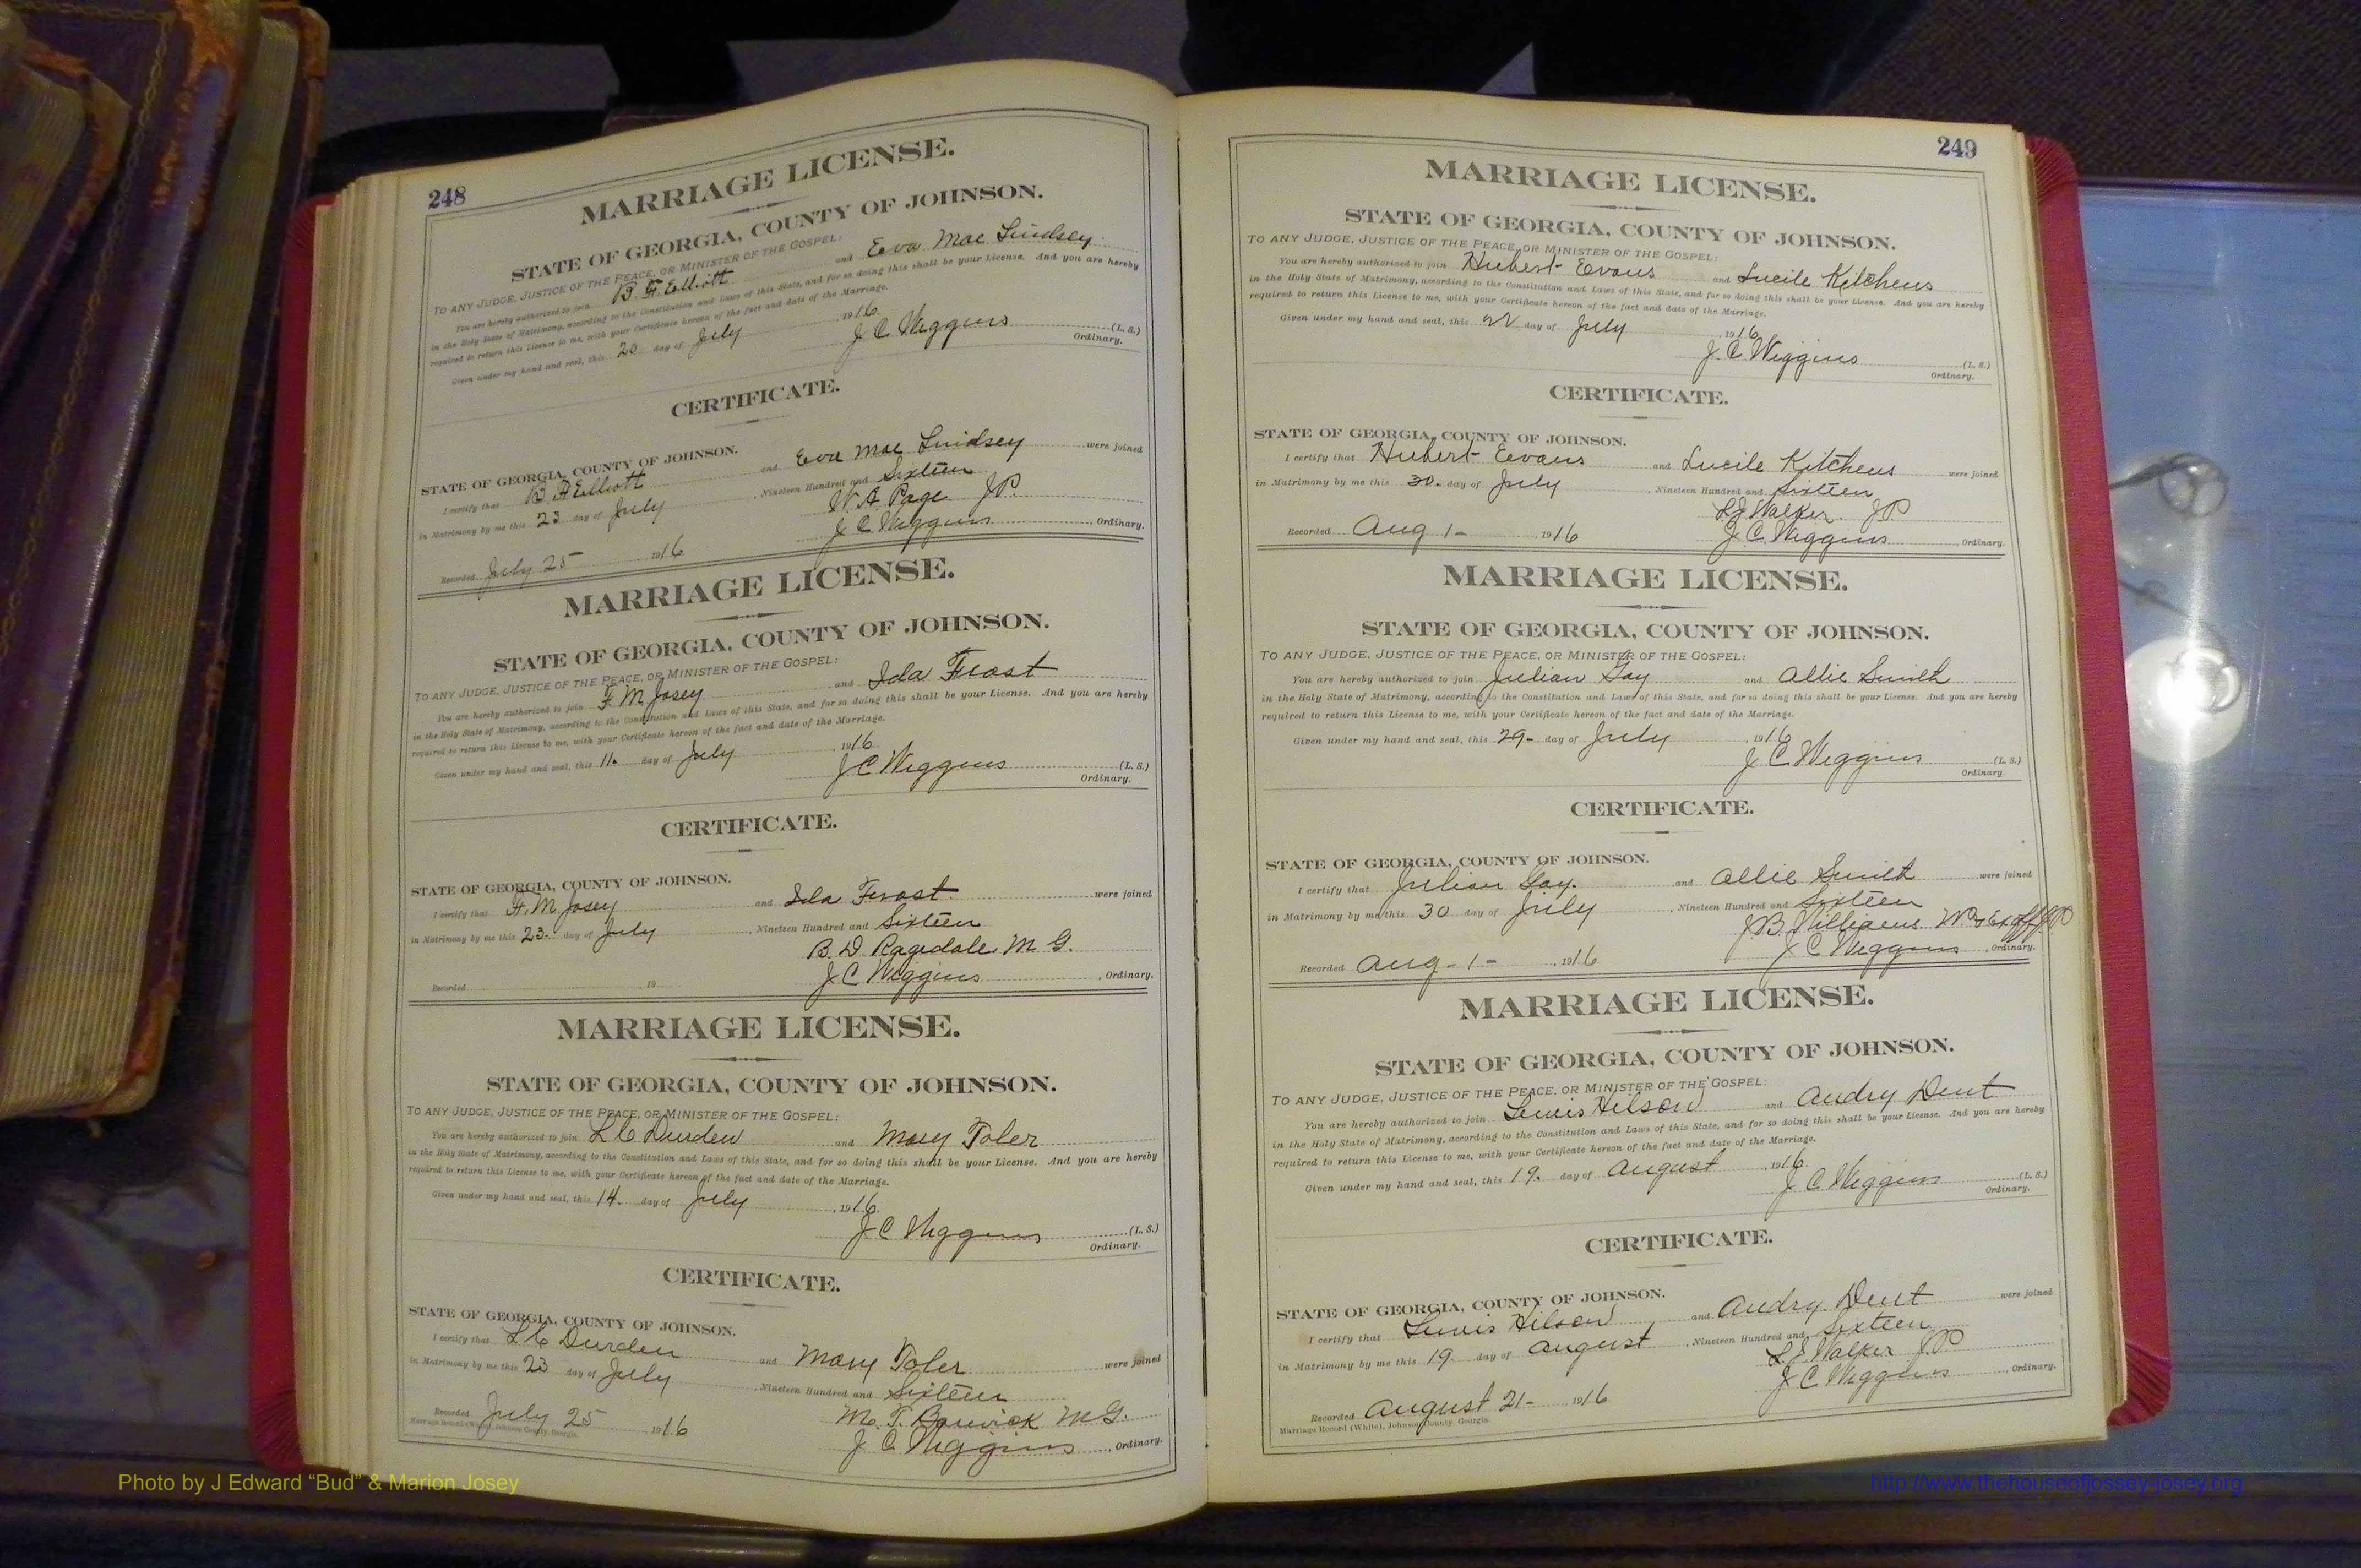 248
MARRIAGE LICENSE.
STATE OF GEORGIA, COUNTY OF JOHNSON.
TO ANY JUDGE, JUSTICE OF THE PEACE, OR MINISTER OF THE GOSPEL:
You are hereby authorized to join B. F. Elliott and Eva Mae Lindsey
in the Holy State of Matrimony, according to the Constitution and Laws of this State, and for so doing this shall be your License. And you are hereby
required to return this License to me, with your Certificate hereon of the fact and date of the Marriage.
Given under my hand and seal, this 20 day of July 1916
J C Wiggins (L. S.)
Ordinary.
CERTIFICATE.
STATE OF GEORGIA, COUNTY OF JOHNSON.
I certify that B. F. Elliott and Eva Mae Lindsey were joined
in Matrimony by me this 23 day of July, Nineteen Hundred and Sixteen
W. A. Page JP.
Recorded July 25 1916 J C Wiggins, Ordinary.
MARRIAGE LICENSE.
STATE OF GEORGIA, COUNTY OF JOHNSON.
TO ANY JUDGE, JUSTICE OF THE PEACE, OR MINISTER OF THE GOSPEL:
You are hereby authorized to join F. M. Josey and Ida Frost
in the Holy State of Matrimony, according to the Constitution and Laws of this State, and for so doing this shall be your License. And you are hereby
required to return this License to me, with your Certificate hereon of the fact and date of the Marriage.
Given under my hand and seal, this 11. day of July, 1916
J C Wiggins (L. S.)
Ordinary.
CERTIFICATE.
STATE OF GEORGIA, COUNTY OF JOHNSON.
I certify that F. M. Josey and Ida Frost. were joined
in Matrimony by me this 23. day of July, Nineteen Hundred and Sixteen
B. D. Ragsdale, M G.
Recorded 19 J C Wiggins, Ordinary.
MARRIAGE LICENSE.
STATE OF GEORGIA, COUNTY OF JOHNSON.
TO ANY JUDGE, JUSTICE OF THE PEACE, OR MINISTER OF THE GOSPEL:
You are hereby authorized to join L C Durden and Mary Toler
in the Holy State of Matrimony, according to the Constitution and Laws of this State, and for so doing this shall be your License. And you are hereby
required to return this License to me, with your Certificate hereon of the fact and date of the Marriage.
Given under my hand and seal, this 14. day of July, 1916
J C Wiggins (L. S.)
Ordinary.
CERTIFICATE.
STATE OF GEORGIA, COUNTY OF JOHNSON.
I certify that L C Durden and Mary Toler were joined
in Matrimony by me this 23 day of July, Nineteen Hundred and Sixteen
M. T. Barwick M G.
Recorded July 25, 1916 J C Wiggins, Ordinary.
Marriage Record (White), Johnson County, Georgia.
249
MARRIAGE LICENSE.
STATE OF GEORGIA, COUNTY OF JOHNSON.
TO ANY JUDGE, JUSTICE OF THE PEACE, OR MINISTER OF THE GOSPEL:
You are hereby authorized to join Hubert Evans and Lucile Kitchens
in the Holy State of Matrimony, according to the Constitution and Laws of this State, and for so doing this shall be your License. And you are hereby
required to return this License to me, with your Certificate hereon of the fact and date of the Marriage.
Given under my hand and seal, this 22 day of July, 1916
J. C. Wiggins (L. S.)
Ordinary.
CERTIFICATE.
STATE OF GEORGIA, COUNTY OF JOHNSON.
I certify that Hubert Evans and Lucile Kitchens were joined
in Matrimony by me this 30. day of July, Nineteen Hundred and Sixteen
Walker. JP
Recorded Aug 1- 1916 J C. Wiggins, Ordinary.
MARRIAGE LICENSE.
STATE OF GEORGIA, COUNTY OF JOHNSON.
TO ANY JUDGE, JUSTICE OF THE PEACE, OR MINISTER OF THE GOSPEL:
You are hereby authorized to join Julian Gay and Allie Smith
in the Holy State of Matrimony, according to the Constitution and Laws of this State, and for so doing this shall be your License. And you are hereby
required to return this License to me, with your Certificate hereon of the fact and date of the Marriage.
Given under my hand and seal, this 29- day of July, 1916
J C Wiggins (L. S.)
Ordinary.
CERTIFICATE.
STATE OF GEORGIA, COUNTY OF JOHNSON.
I certify that Julian Gay. and Allie Smith were joined
in Matrimony by me this 30 day of July, Nineteen Hundred and Sixteen
J. B. Williams
Recorded Aug-1-, 1916 J C Wiggins, Ordinary.
MARRIAGE LICENSE.
STATE OF GEORGIA, COUNTY OF JOHNSON.
TO ANY JUDGE, JUSTICE OF THE PEACE, OR MINISTER OF THE GOSPEL:
You are hereby authorized to join Lewis Hilson and Audry Dent
in the Holy State of Matrimony, according to the Constitution and Laws of this State, and for so doing this shall be your License. And you are hereby
required to return this License to me, with your Certificate hereon of the fact and date of the Marriage.
Given under my hand and seal, this 19. day of August, 1916
J. C Wiggins (L. S.)
Ordinary.
CERTIFICATE.
STATE OF GEORGIA, COUNTY OF JOHNSON.
I certify that Lewis Hilson and Audry Dent were joined
in Matrimony by me this 19. day of August, Nineteen Hundred and Sixteen
Walker JP
J C Wiggins, Ordinary.
Recorded August 21- 1916
Marriage Record (White), Johnson County, Georgia.
Photo by J Edward “Bud” & Marion Josey
http://www.thehouseofjossey-josey.org